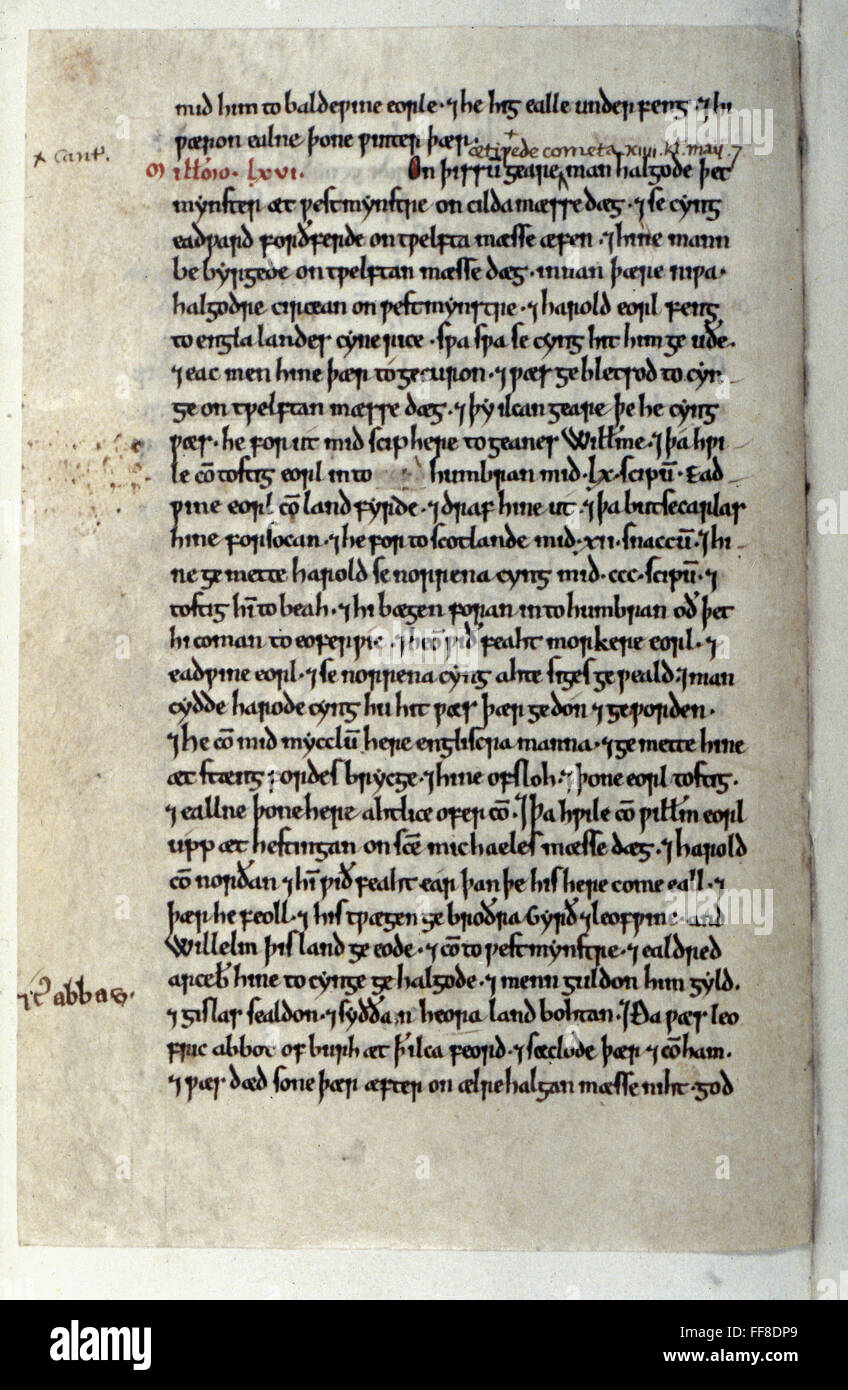 mid him to baldeƿine eorle · ⁊ he hig ealle underfeng · ⁊ hi
ƿæron ealne þone ƿinter þær ·
+ Cant'.
ætiƿede cometa xiiii kł. maii. ⁊
Millo̅mo · lxvi. On þissu̅ geare man halgode þet
mynster æt ƿestmynstre on cildamæsse dæg · ⁊ se cyng
eadƿard forðferde on tƿelfta mæsse æfen · ⁊ hine mann
bebyrgede on tƿelftan mæsse dæg · innan þære niƿa ·
halgodre circean on ƿestmynstre · ⁊ harold eorl feng
to engla landes cynerice · sƿa sƿa se cyng hit him geuðe ·
⁊ eac men hine þær to gecuron · ⁊ ƿæs gebletsod to cyn
ge on tƿelftan mæsse dæg · ⁊ þy ilcan geare þe he cyng
ƿæs · he for ut mid sciphere togeanes Willme · ⁊ þa hƿi
le co̅ tostig eorl into humbran mid · lx · scipu̅ · Ead
ƿine eorl co̅ landfyrde · ⁊ draf hine ut · ⁊ þa butsecarlas
hine forsocan · ⁊ he for to scotlande mid · xii · snaccu̅ · ⁊ hi
ne gemette harold se norrena cyng mid · ccc · scipu̅ · ⁊
tostig hi̅ to beah · ⁊ hi bægen foran into humbran oð þet
hi coman to eoferƿic · ⁊ heo̅ ƿið feaht morkere eorl · ⁊
eadƿine eorl · ⁊ se norrena cyng ahte siges geƿeald · ⁊ man
cydde harode cyng hu hit ƿæs þær gedon ⁊ geƿorden ·
⁊ he co̅ mid mycclu̅ here engliscra manna · ⁊ gemette hine
æt stængfordes brycge · ⁊ hine ofsloh · ⁊ þone eorl tostig ·
⁊ eallne þone here ahtlice ofer co̅ · ⁊ þa hƿile co̅ ƿillm eorl
upp æt hestingan on sc̅e michaeles mæsse dæg · ⁊ harold
co̅ norðan ⁊ hi̅ ƿið feaht ear þan þe his here come eall · ⁊
þær he feoll · ⁊ his tƿægen gebroðra Gyrð ⁊ leofƿine · and
Willelm þis land geeode · ⁊ co̅ to ƿestmynstre · ⁊ ealdred
arceb̅ hine to cynge gehalgode · ⁊ menn guldon him gyld ·
⁊ gislas sealdon · ⁊ syððan heora land bohtan · ⁊ Ða ƿæs leo
fric abbot of burh æt þ̅ ilca feord · ⁊ sæclode þær ⁊ co̅ ham ·
⁊ ƿæs dæd sone þær æfter on ælre halgan mæsse niht · god
abbas ·
alamy
Image ID: FF8DP9
www.alamy.com